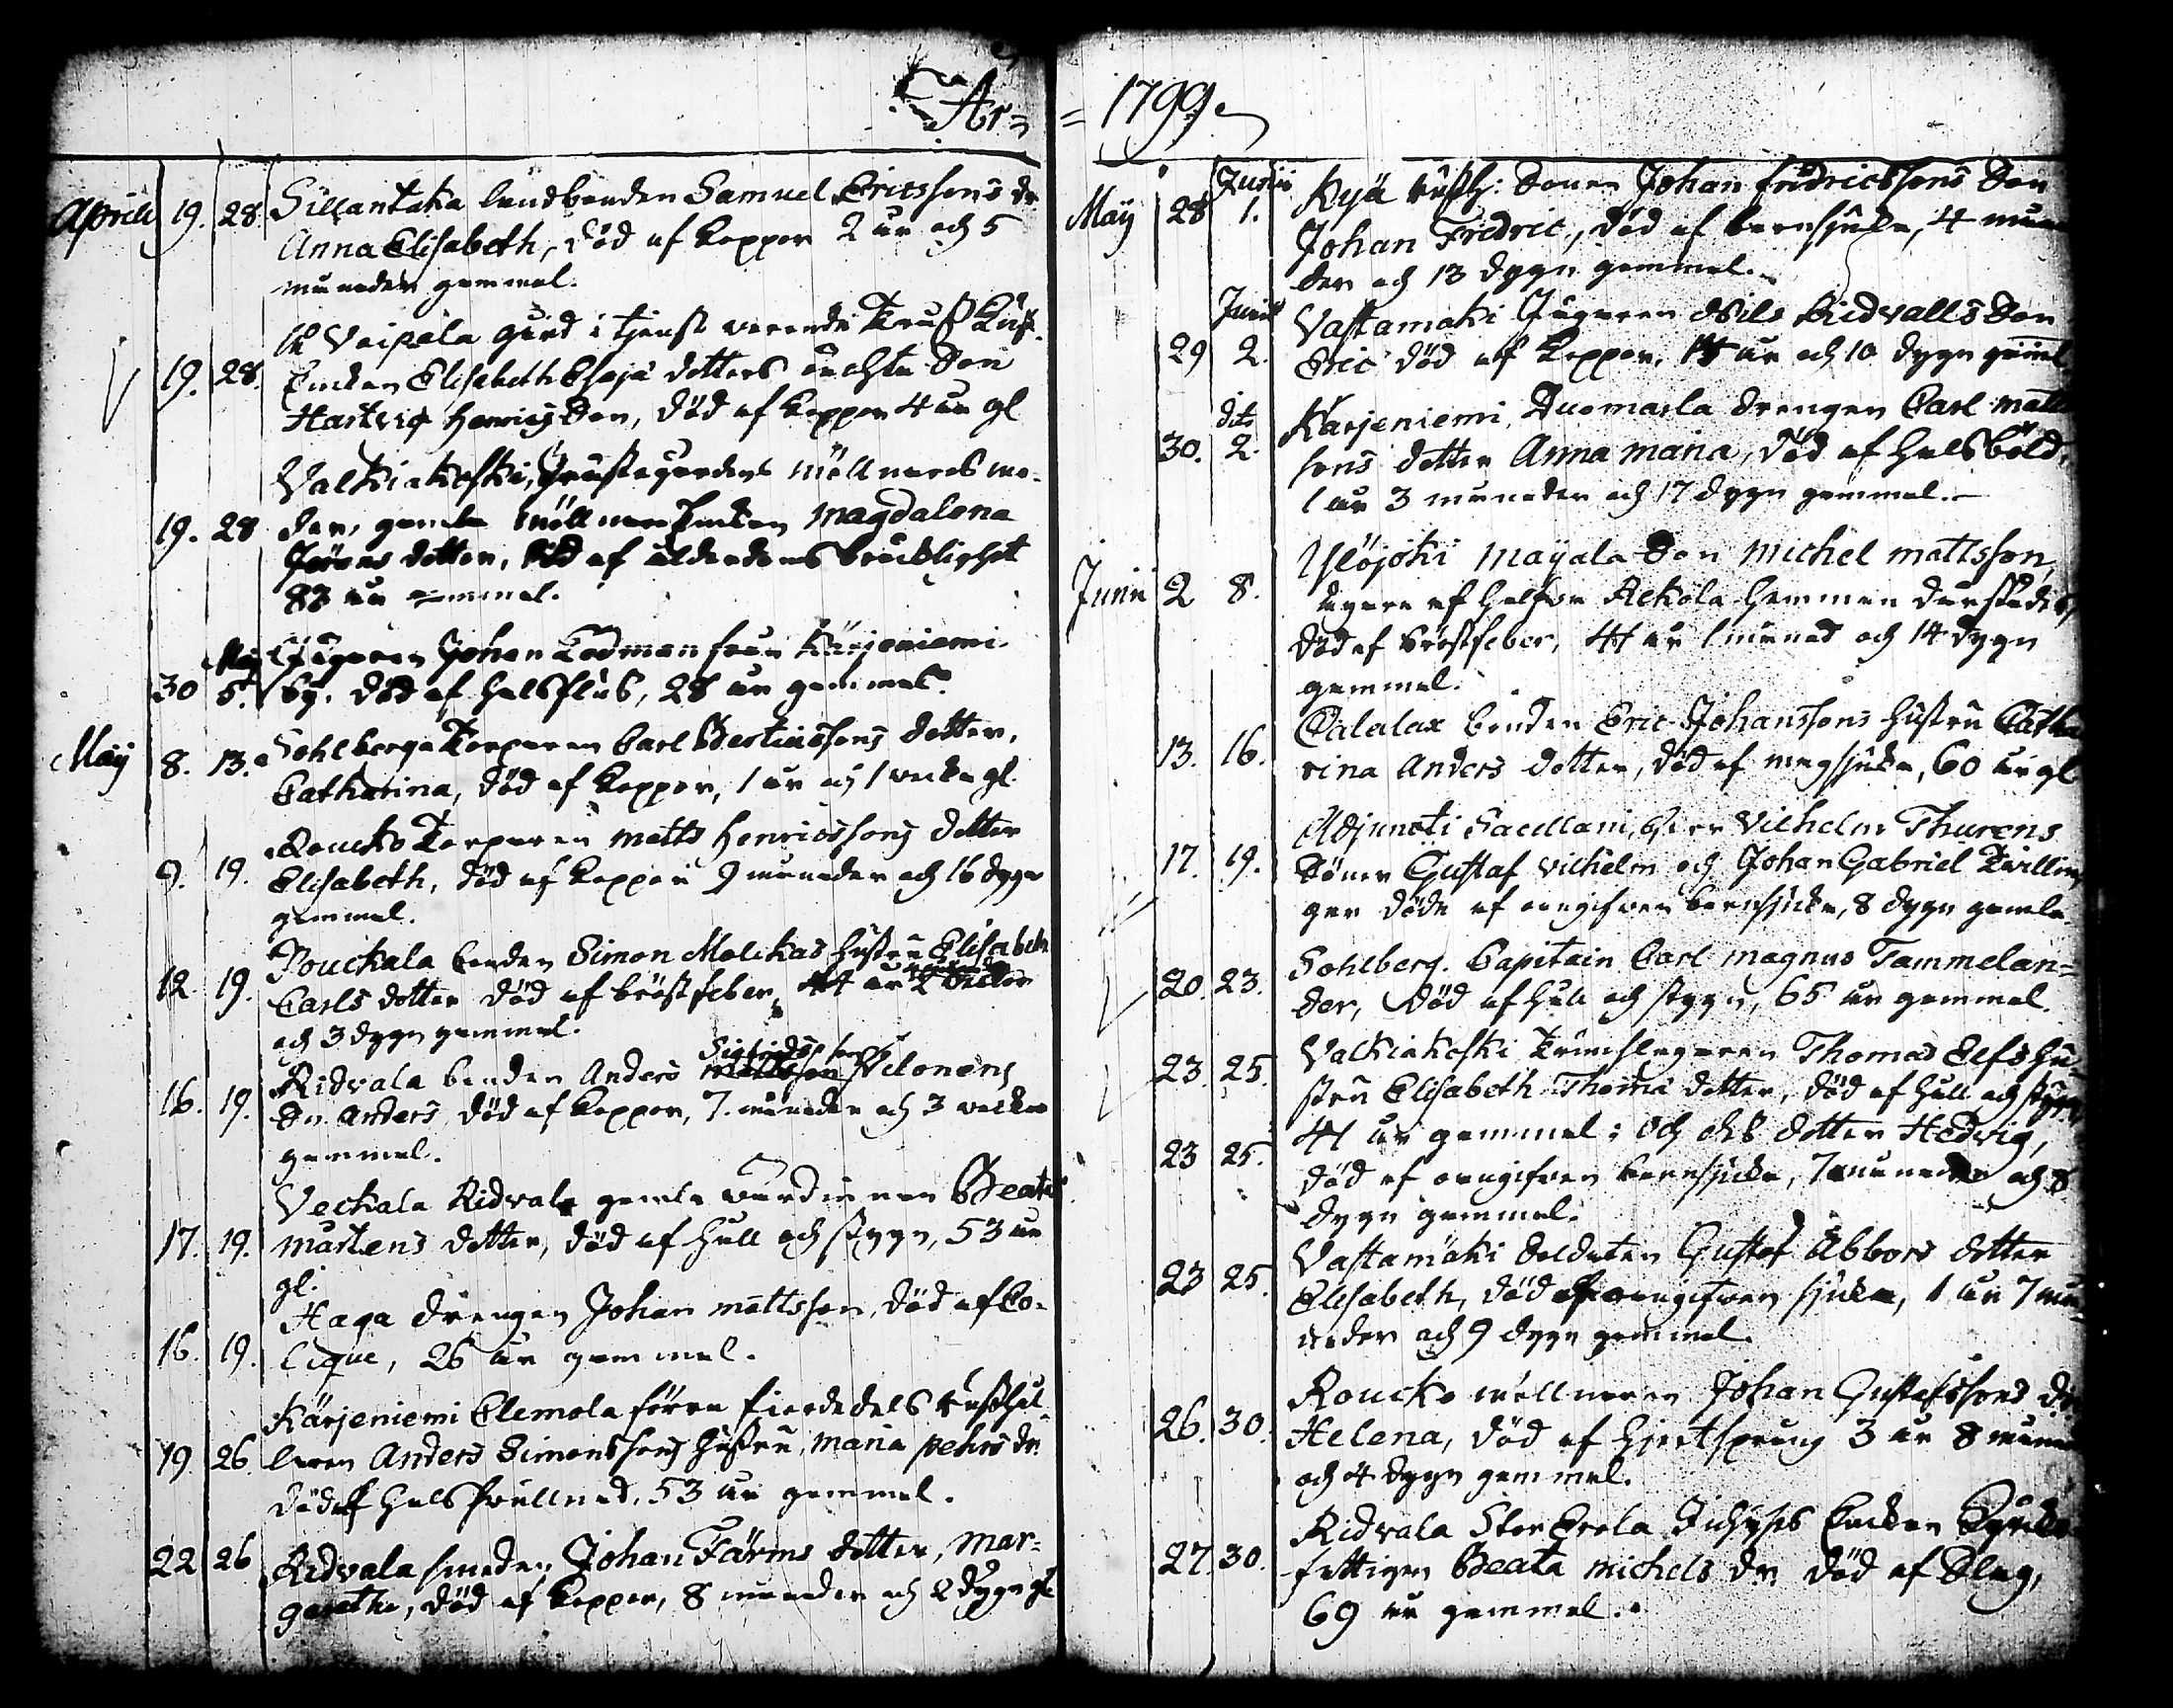 År =
April 19. 28. Sillantaka landbonden Samuel Ericssons dr
Anna Elisabeth, död af koppor 2 år och 5
månader gammal.
Vaipala gård i tjenst varande
19. 28. Enckan Elisabeth Esajæ dotters oächta Son
Hartvig Henricsson, död af koppor 4 år gl
Valkiakoski, möllnares mo-
19. 28 der, gamla möllnare Enckan Magdalena
Jörans dotter, död af ålderdoms bräcklighet
83 år gammal.
Maj Jägaren Johan Lodman från Kärjeniemi
30 5. by. död af halsflus, 28 år gammal.
May 8. 13. Sohlberga Torparen Carl Bertilssons dotter,
Catharina, död af koppor, 1 år och 1 vecka gl.
Roucko Torparen Matts Henricssons dotter
9. 19. Elisabeth, död af koppor 9 månader och 16 dygn
gammal.
Pouckala bonden Simon Molikas hustru Elisabeth
12. 19. Carls dotter död af bröstfeber, 44 år 2
och 3 dygn gammal.
Sigfridsson
Ridvala bonden Anders Mattsson Velonens
16. 19. Son Anders, död af koppor, 7. månader och 3 veckor
gammal.
Veckala Ridvala gamla värdinnan Beata
17. 19. Mårtens dotter, död af håll och styng, 53 år
gl.
Haga drengen Johan Mattsson, död af Co-
16. 19. lique, 26 år gammal.
Kärjeniemi Elemola förra fierdedels rusthål-
19. 26. laren Anders Simonssons hustru, Maria Pehrs dr.
död af halssvullnad, 53 år gammal.
22 26 Ridvala smeden Johan Färms dotter, Mar-
garetha, död af koppor, 8 månader och 2 dygn gl
= 1799.
Junii Kyä rusth: Sonen Johan Fridricssons Son
May 28 1. Johan Fredric, död af barnsjuka, 4 måna-
der och 13 dygn gammal.
Junii Vastamäki Jägaren Nils Ridvalls Son
29 2. Eric död af koppor, år och 10 dygn gammal
dito Kärjeniemi, Duomarla drengen Carl Matts
30. 2. sons dotter Anna Maria, död af halsböld,
1 år 3 månader och 17 dygn gammal.
Ylöjoki Mayala Son Michel Mattsson,
Junii 2 8. ägare af halfva Rekola hemman därstädes,
död af bröstfeber, 44 år 1 månad och 14 dygn
gammal.
Calalax bonden Eric Johanssons hustru Catha
13. 16. rina Anders dotter, död af magsjuka, 60 år gl
Adjuncti Sacellani, Herr Vilhelm Thurens
17. 19. Söner Gustaf Vilhelm och Johan Gabriel Tvillin
gar döde af oangifven barnsjuka, 8 dygn gamla
Sohlberg. Capitain Carl Magnus Tammelan=
20. 23. der, död af håll och styng, 65 år gammal.
Valkiakoski Trumslagaren Thomas Elfs hu-
23. 25. stru Elisabeth Thomæ dotter, död af håll och styng,
44 år gammal; och dess dotter Hedvig,
23 25. död af oangifven barnsjuka, 7 månader och 8
dygn gammal.
Vastamäki Soldaten Gustaf Abbors dotter
23 25. Elisabeth, död af oangifven sjuka, 1 år 7 må-
nader och 9 dygn gammal.
Roucko möllnaren Johan Gustafssons dr
26. 30. Helena, död af hjertsprång 3 år 8 måna
och 4 dygn gammal.
Ridvala Stor Erola Inhyses Enckan
27. 30. fattigen Beata Michels dr. död af Slag,
69 år gammal.